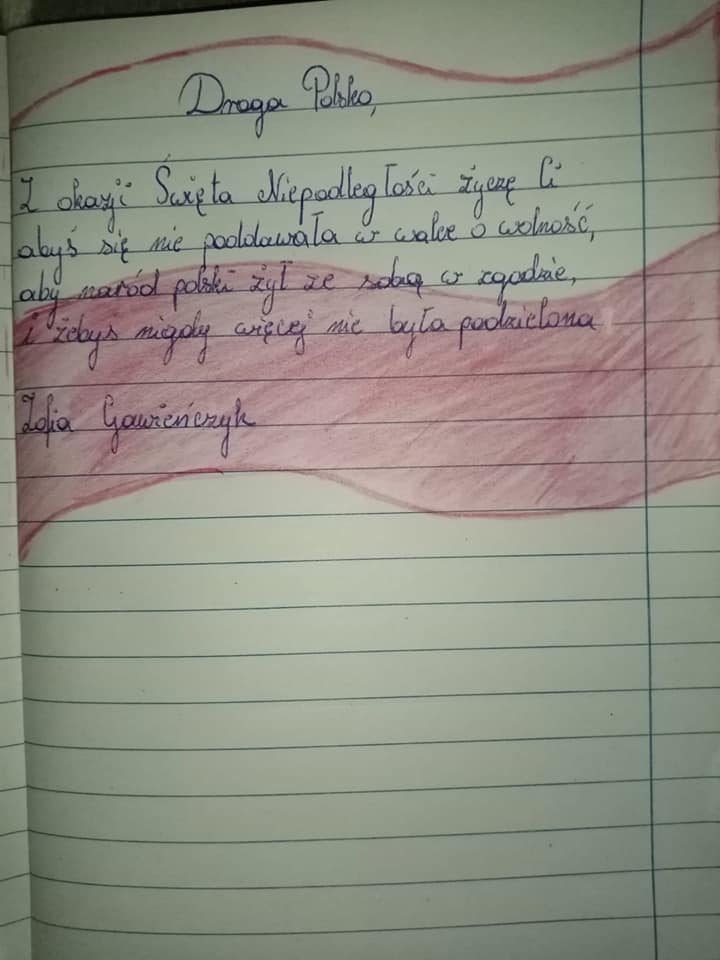 Droga Polsko,
Z okazji Święta Niepodległości życzę Ci
abyś się nie poddawała w walce o wolność,
aby naród polski żył ze sobą w zgodzie,
i żebyś nigdy więcej nie była podzielona
Zofia Gawieńczyk